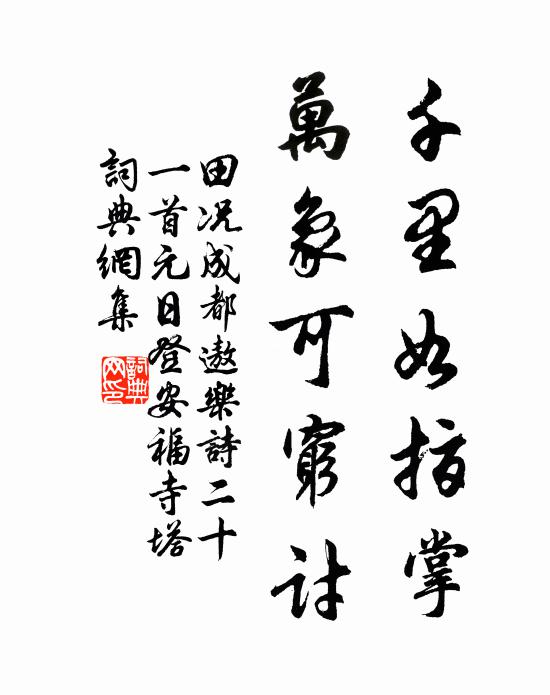 千里如指掌
萬象可窮討
田況成都遨樂詩二十
一首元日登安福寺塔
詞典網集
詞典
网印